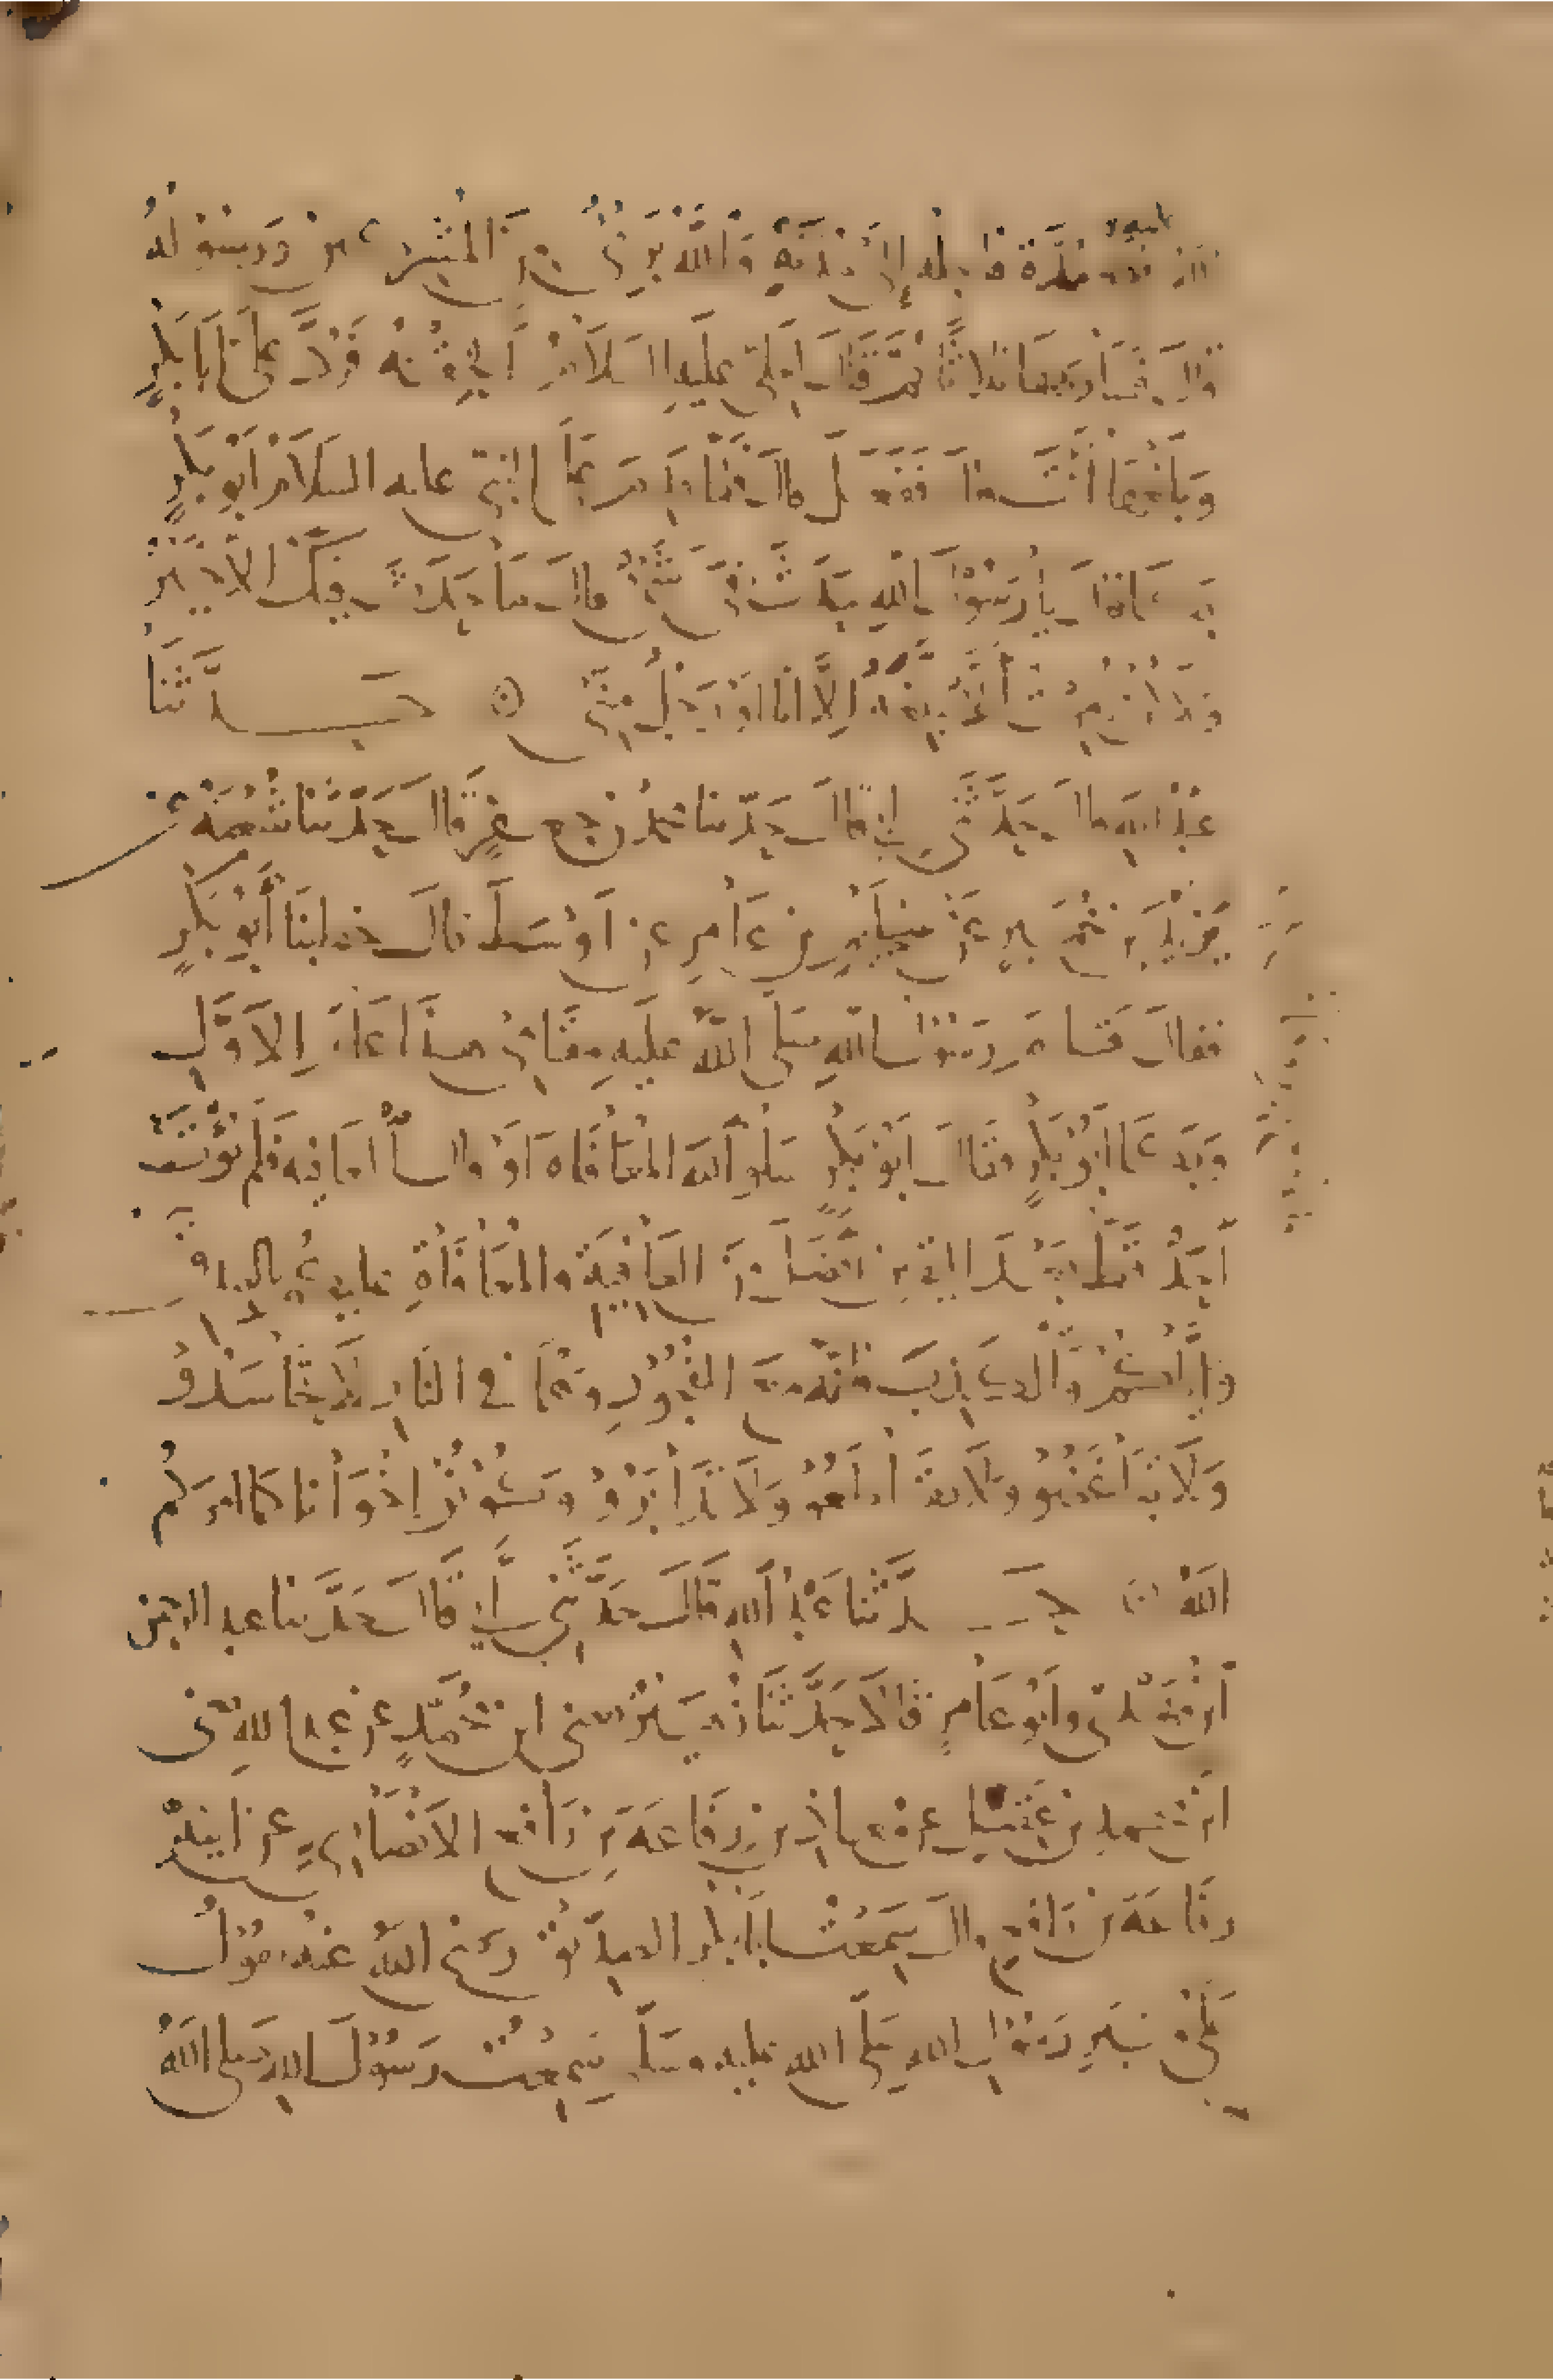 مدة فاجله إلى مدته والله بري من المشركين ورسوله
قال فسار بها ثلاثا ثم قال لعلي عليه السلام الحقه فرد علي ابا بكر
وبلغها أنت قال ففعل قال فلما قدم على النبي عليه السلام أبو بكر
بكا قال يا رسول الله حدث في شي قال ما حدث فيك الا خير
ولكن امرت أن لا يبلغه إلا انا او رجل مني ه حدثنا
عبد الله قال حدثني ابي قال حدثنا محمد بن جعفر قال حدثنا شعبة عن
يزيد بن خمير عن سليم بن عامر عن اوسط قال خطبنا أبو بكر
فقال قام رسول الله صلى الله عليه مقامي هذا عام الاول
وبكا أبو بكر فقال ابو بكر سلوا الله المعافاه او قال العافيه فلم يوت
احد قط بعد اليقين افضل من العافية والمعافاة عليكم بالصدق
واياكم والكذب فانه مع الفجور وهما في النار لا تحاسدوا
ولا تباغضوا ولا تقاطعوا ولا تدابروا وكونوا إخوانا كما امركم
الله ه حدثنا عبد الله قال حدثني أبي قال حدثنا عبد الرحمن
ابن مهدي وابو عامر قالا حدثنا زهير يعني ابن محمد عن عبد الله يعني
ابن محمد بن عقيل عن معاذ بن رفاعة بن رافع الانصاري عن ابيه
رفاعة بن رافع قال سمعت ابا بكر الصديق رضي الله عنه يقول
على منبر رسول الله صلى الله عليه وسلم سمعت رسول الله صلى الله